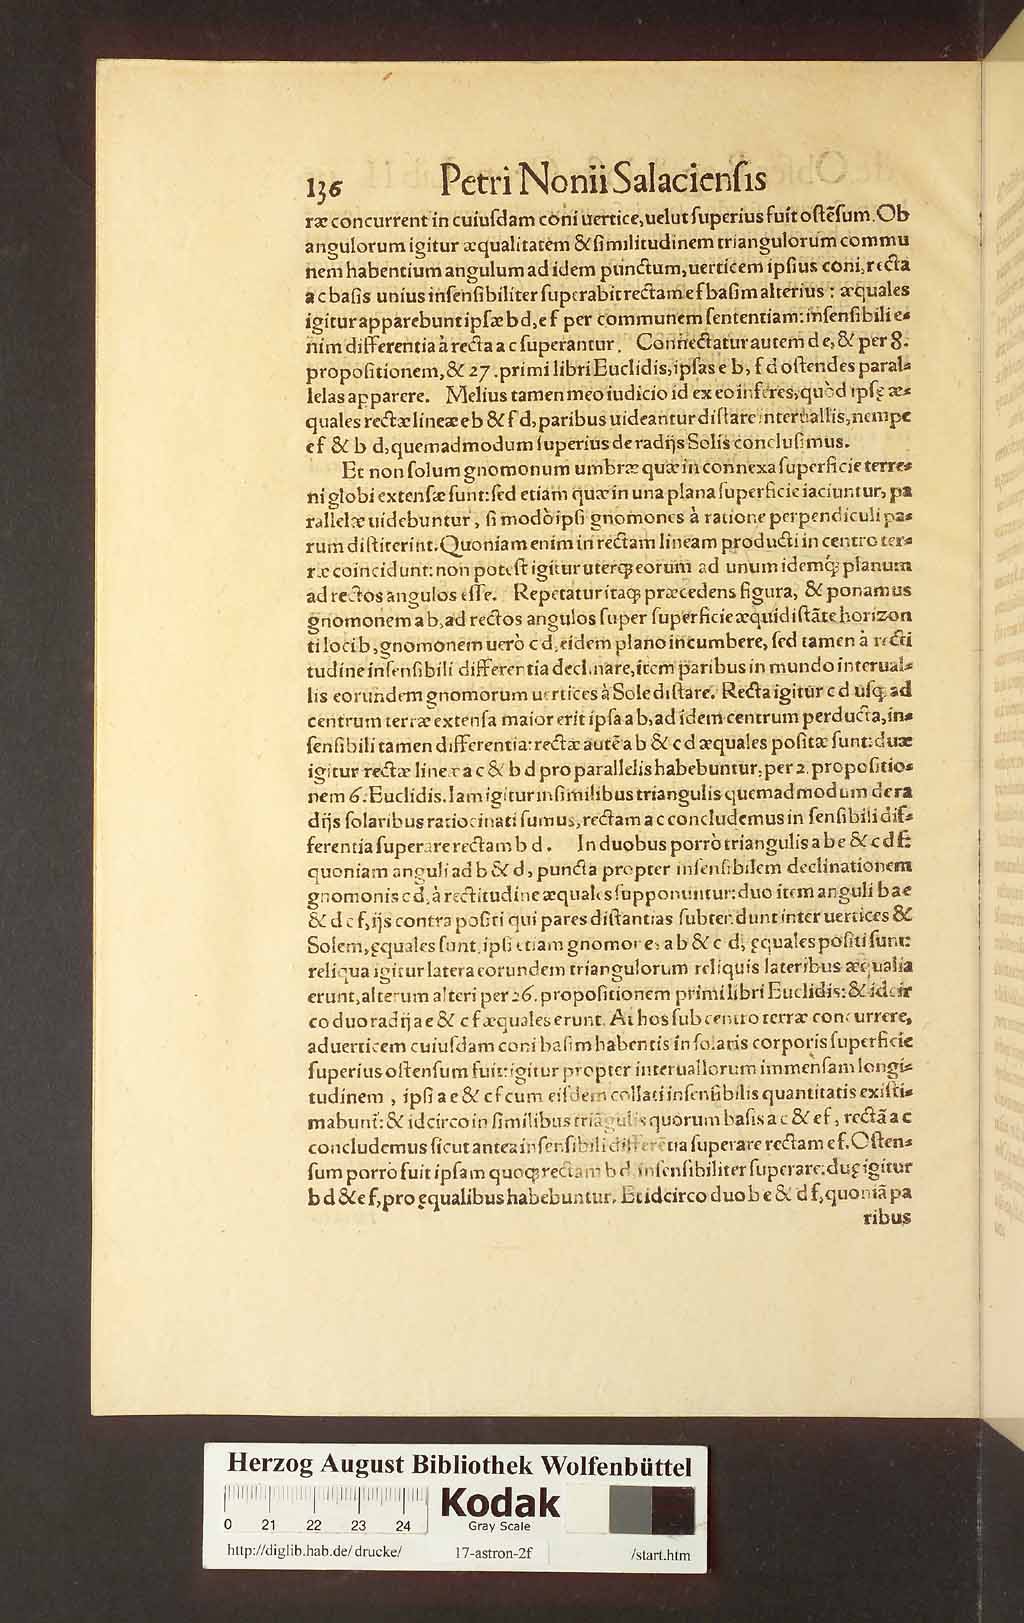 136 Petri Nonii Salaciensis
ræ concurrent in cuiusdam coni uertice, uelut superius fuit ostẽsum. Ob
angulorum igitur æqualitatem & similitudinem triangulorum commu
nem habentium angulum ad idem punctum, uerticem ipsius coni, recta
a c basis unius insensibiliter superabit rectam e f basim alterius: æquales
igitur apparebunt ipsæ b d, e f per communem sententiam: insensibili e-
nim differentia à recta a c superantur. Connectatur autem d e, & per 8.
propositionem, & 27. primi libri Euclidis, ipsas e b, f d ostendes paral-
lelas apparere. Melius tamen meo iudicio id ex eo inferes, quòd ipsę æ-
quales rectæ lineæ e b & f d, paribus uideantur distare interuallis, nempe
e f & b d, quemadmodum superius de radijs Solis conclusimus.
Et non solum gnomonum umbræ quæ in connexa superficie terre-
ni globi extensæ sunt: sed etiam quæ in una plana superficie iaciuntur, pa
rallelæ uidebuntur, si modò ipsi gnomones à ratione perpendiculi pa-
rum distiterint. Quoniam enim in rectam lineam producti in centro ter-
ræ coincidunt: non potest igitur uterq; eorum ad unum idemq́; planum
ad rectos angulos esse. Repetatur itaq; præcedens figura, & ponamus
gnomonem a b, ad rectos angulos super superficie æquidistãte horizon
ti loci b, gnomonem uerò c d, eidem plano incumbere, sed tamen à recti
tudine insensibili differentia declinare, item paribus in mundo interual-
lis eorundem gnomorum uertices à Sole distare. Recta igitur c d usq; ad
centrum terræ extensa maior erit ipsa a b, ad idem centrum perducta, in-
sensibili tamen differentia: rectæ autẽ a b & c d æquales positæ sunt: duæ
igitur rectæ lineæ a c & b d pro parallelis habebuntur, per 2. propositio-
nem 6. Euclidis. Iam igitur in similibus triangulis quemadmodum de ra
dijs solaribus ratiocinati sumus, rectam a c concludemus in sensibili dif-
ferentia superare rectam b d. In duobus porrò triangulis a b e & c d f:
quoniam anguli ad b & d, puncta propter insensibilem declinationem
gnomonis c d, à rectitudine æquales supponuntur: duo item anguli b a e
& d c f, ijs contra positi qui pares distantias subtendunt inter uertices &
Solem, ęquales sunt, ipsi etiam gnomones a b & c d, ęquales positi sunt:
reliqua igitur latera eorundem triangulorum reliquis lateribus æqualia
erunt, alterum alteri per 26. propositionem primi libri Euclidis: & idcir
co duo radij a e & c f æquales erunt. At hos sub centro terræ concurrere,
ad uerticem cuiusdam coni basim habentis in solaris corporis superficie
superius ostensum fuit: igitur propter interuallorum immensam longi-
tudinem, ipsi a e & c f cum eisdem collati insensibilis quantitatis existi-
mabunt: & idcirco in similibus triãgulis quorum basis a c & e f, rectã a c
concludemus sicut antea insensibili differẽtia superare rectam e f. Osten-
sum porrò fuit ipsam quoq; rectam b d insensibiliter superare: duę igitur
b d & e f, pro ęqualibus habebuntur. Et idcirco duo b e & d f, quoniã pa
ribus
Herzog August Bibliothek Wolfenbüttel
Kodak
Gray Scale
0 21 22 23 24
http://diglib.hab.de/drucke/ 17-astron-2f /start.htm